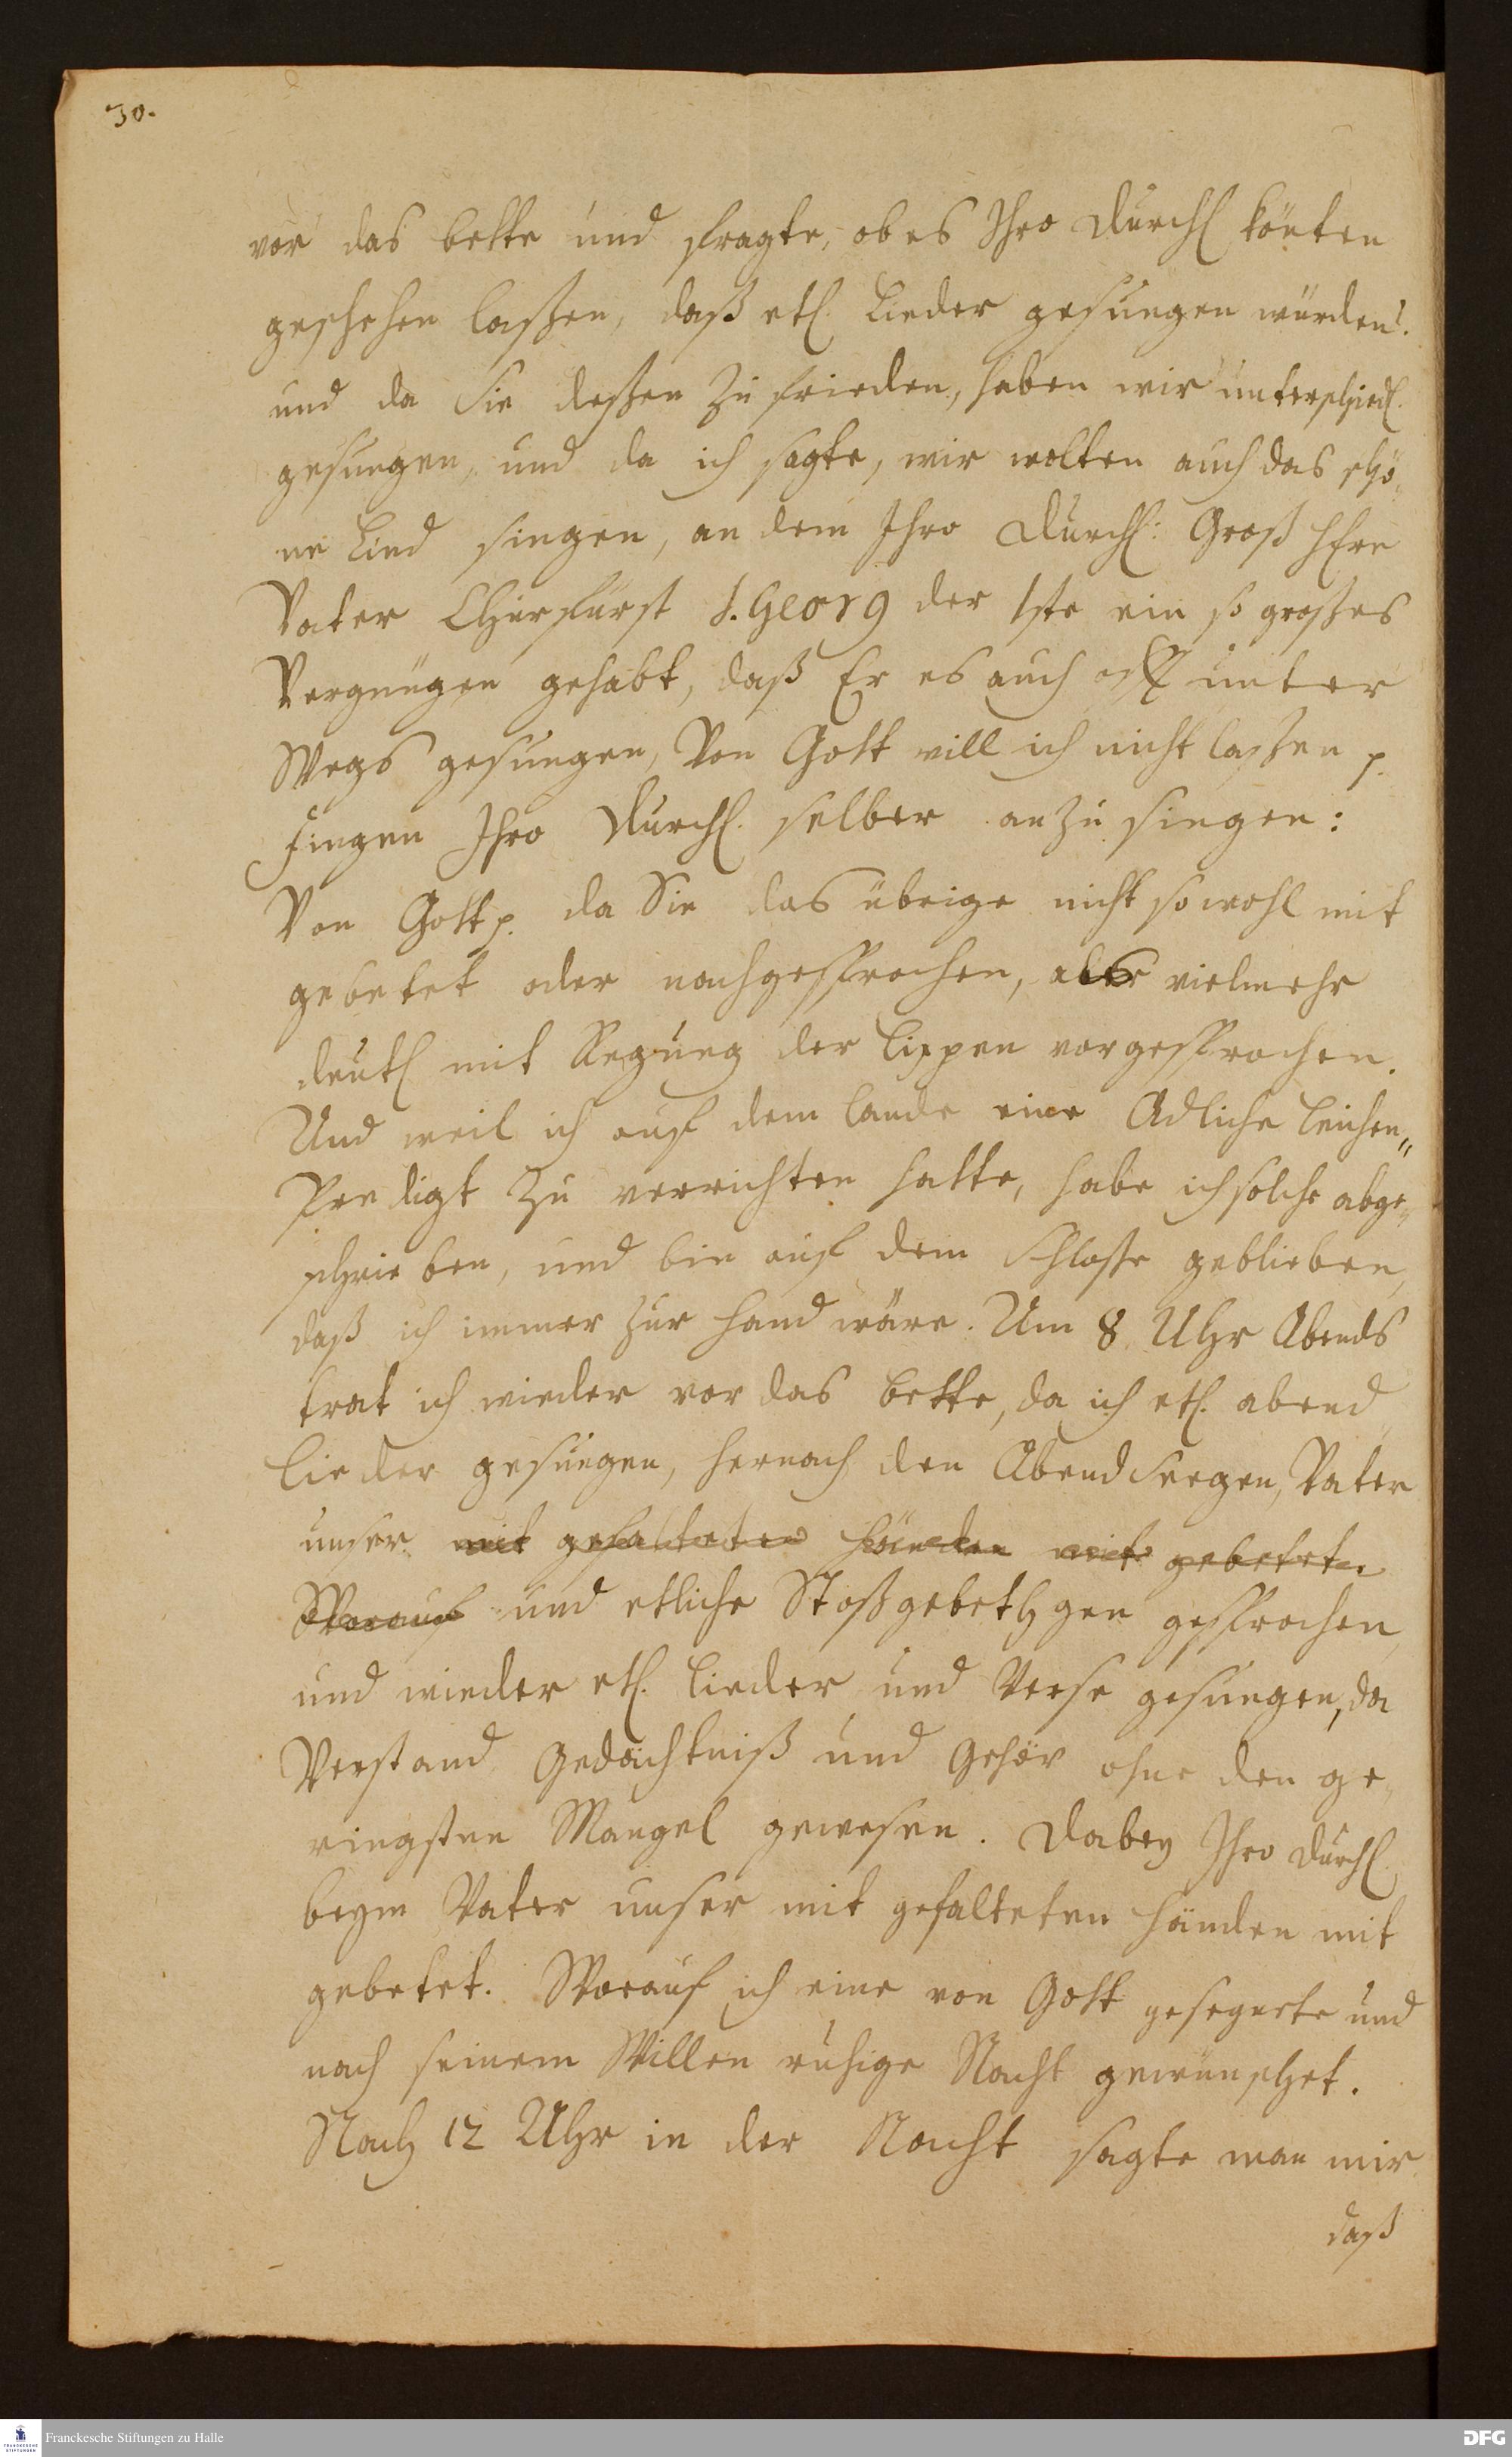 30.
vor das bette und fragte, ob es Ihro Durchl könten
geschehen laßen, daß etl. Lieder gesungen würden.
und da Sie deßen zu frieden, haben wir unterschiedl.
gesungen, und da ich sagte, wir wolten auch das schö-
ne Lied singen, an dem Ihro Durchl: Groß HErr
Vater Churfürst J. Georg der 1ste ein so großes
Vergnügen gehabt, daß Er es auch offt unter
Wegs gesungen, Von Gott will ich nicht laßen p.
Fingen Ihro Durchl. selber an zu singen:
Von Gott p. da Sie das übrige nicht so wohl mit
gebetet oder nachgesprochen, als vielmehr
deutl mit Regung der Lippen vorgesprochen.
Und weil ich auf dem Lande eine Adliche Leichen-
Predigt zu verrichten hatte, habe ich solche abge-
schrieben, und bin auf dem Schloße geblieben,
daß ich immer zur Hand wäre. Um 8 Uhr Abends
trat ich wieder vor das Bette, da ich etl. abend
Lieder gesungen, hernach den AbendSeegen, Vater
unser mit gefalteten Händen mit gebetet.
Worauf und etliche Stoßgebethgen gesprochen,
und wieder etl. Lieder und Verse gesungen, da
Verstand Gedächtniß und Gehör ohne den ge-
ringsten Mangel gewesen. Dabey Ihro Durchl.
beym Vater unser mit gefalteten Händen mit
gebetet. Worauf ich eine von Gott gesegnete und
nach seinem Willen ruhige Nacht gewünschet.
Nach 12 Uhr in der Nacht sagte man mir
daß
Franckesche Stiftungen zu Halle
DFG